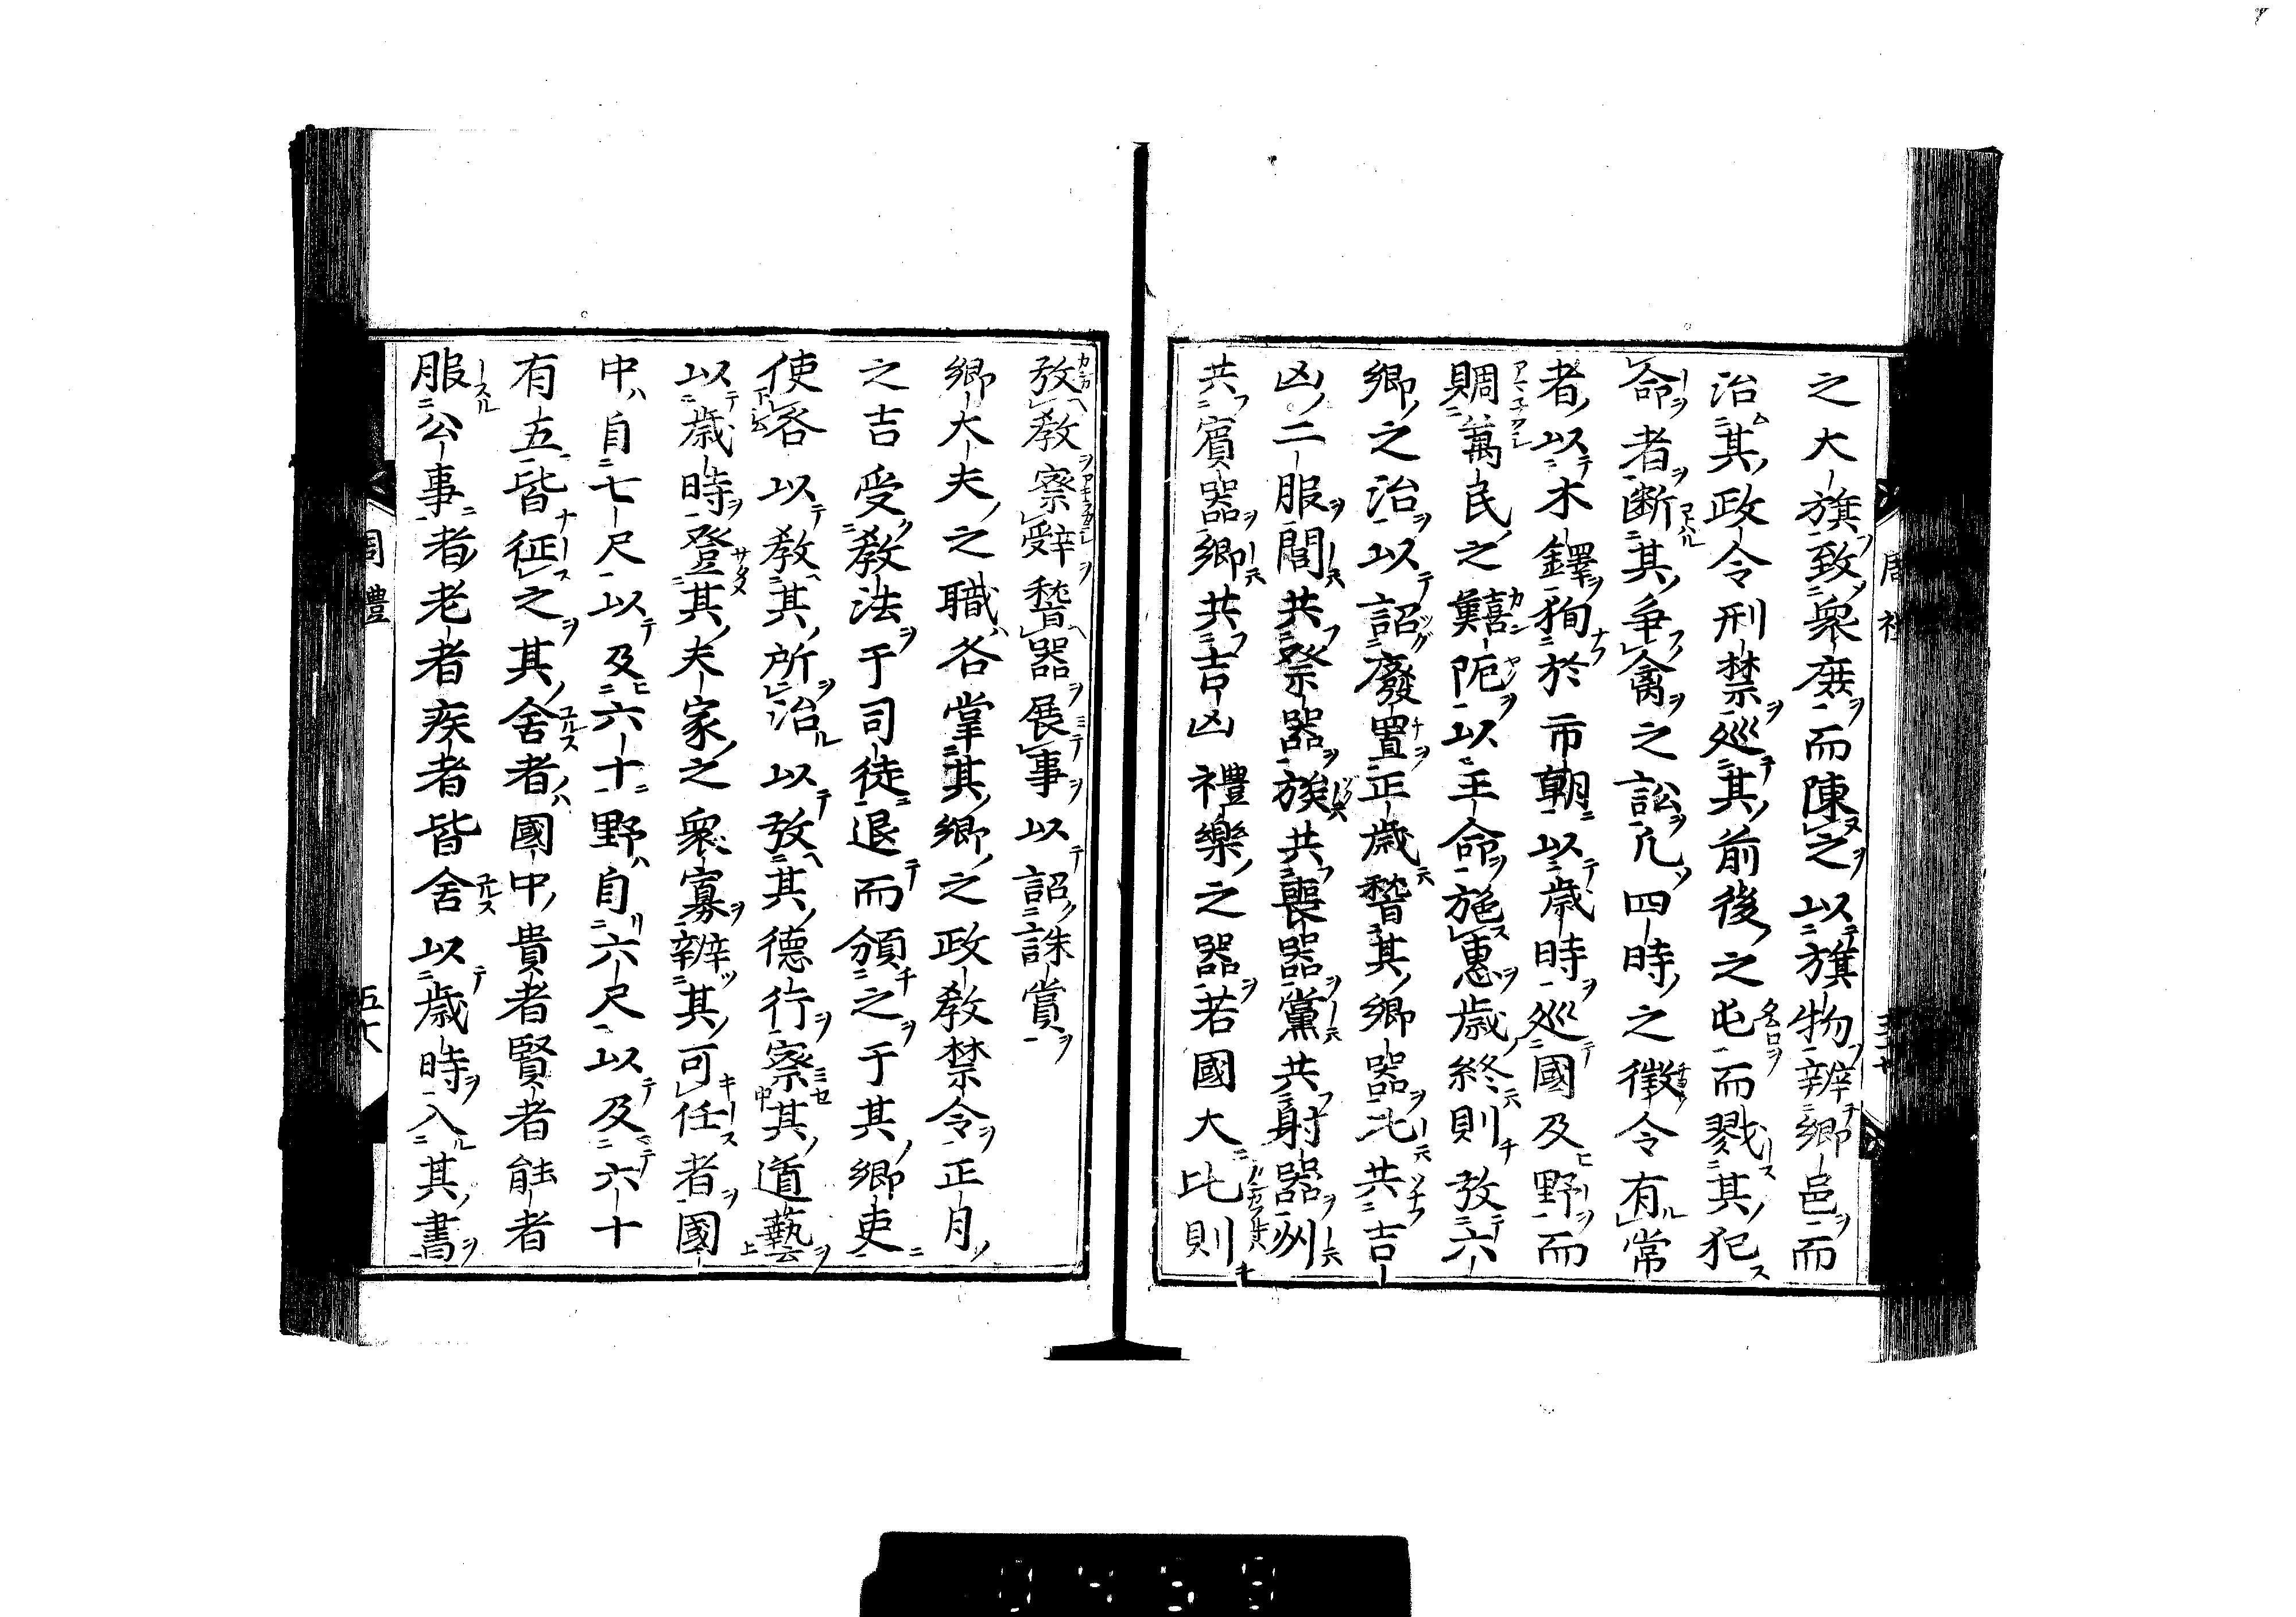 之大旗致衆庶而陳之以旗物辨鄉邑而
治其政令刑禁巡其前後之屯而戮其犯
命者断其爭禽之訟凡四時之徵令有常
者以木鐸狥於市朝以歳時巡國及野而
賙萬民之囏阨以王命施惠歳終則攷六
鄉之治以詔廢置正歳稽其鄉器比共吉
凶二服閭共祭器族共喪器黨共射器州
共賓器鄉共吉凶禮樂之器若國大比則
攷教察辭稽器展事以詔誅賞
鄉大夫之職各掌其鄉之政教禁令正月
之吉受教法于司徒退而頒之于其鄉吏
使各以教其所治以攷其德行察其道藝
以歳時登其夫家之衆寡辨其可任者國
中自七尺以及六十野自六尺以及六十
有五皆征之其舍者國中貴者賢者能者
服公事者老者疾者皆舍以歳時入其書
周禮